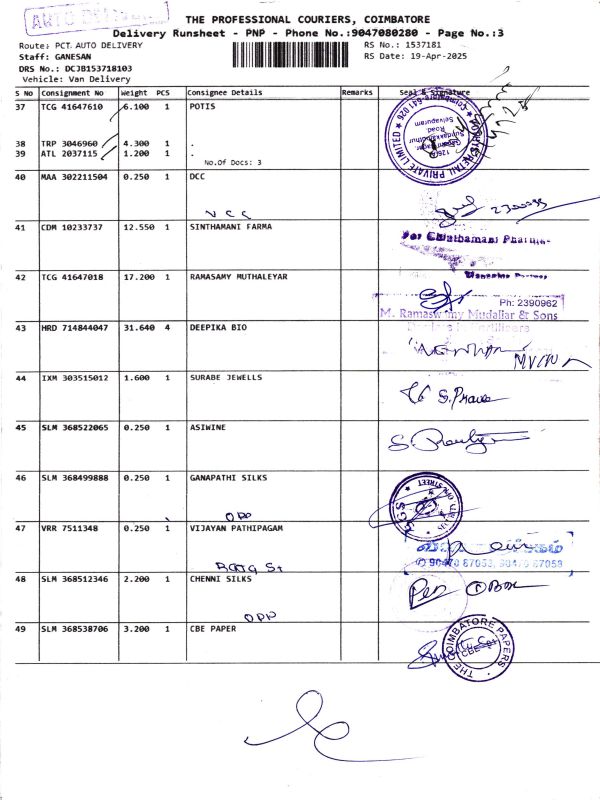 AUTO DELIVERY
THE PROFESSIONAL COURIERS, COIMBATORE
Delivery Runsheet - PNP - Phone No.:9047080280 - Page No.:3
Route: PCT AUTO DELIVERY
RS No.: 1537181
Staff: GANESAN
RS Date: 19-Apr-2025
DRS No.: DCJB153718103
Vehicle: Van Delivery
S No Consignment No Weight PCS Consignee Details Remarks Seal & Signature
37 TCG 41647610 6.100 1 POTIS
38 TRP 3046960 4.300 1 .
39 ATL 2037115 1.200 1 .
No.Of Docs: 3
RETAIL PRIVATE LIMITED
Coimbatore-641 026
Selvapuram
Road
40 MAA 302211504 0.250 1 DCC
VCC
41 CDM 10233737 12.550 1 SINTHAMANI FARMA
For Chinthamani Pharma
42 TCG 41647018 17.200 1 RAMASAMY MUTHALEYAR
Ph: 2390962
M. Ramaswamy Mudaliar & Sons
43 HRD 714844047 31.640 4 DEEPIKA BIO
44 IXM 303515012 1.600 1 SURABE JEWELLS
45 SLM 368522065 0.250 1 ASIWINE
46 SLM 368499888 0.250 1 GANAPATHI SILKS
OPP
47 VRR 7511348 0.250 1 VIJAYAN PATHIPAGAM
48 SLM 368512346 2.200 1 CHENNI SILKS
OPP
49 SLM 368538706 3.200 1 CBE PAPER
THE COIMBATORE PAPERS